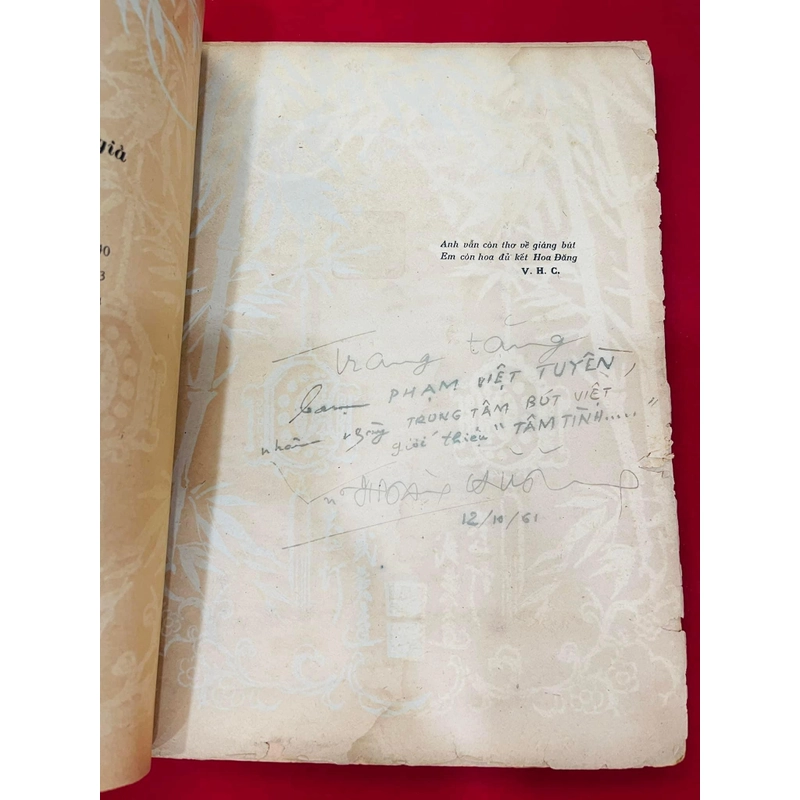 giả
00
3
Anh vẫn còn thơ về giáng bút
Em còn hoa đủ kết Hoa Đăng
V. H. C.
Trang tặng
bạn PHẠM VIỆT TUYỀN,
nhân ngày TRUNG TÂM BÚT VIỆT
giới thiệu "TÂM TÌNH....."
12/10/61